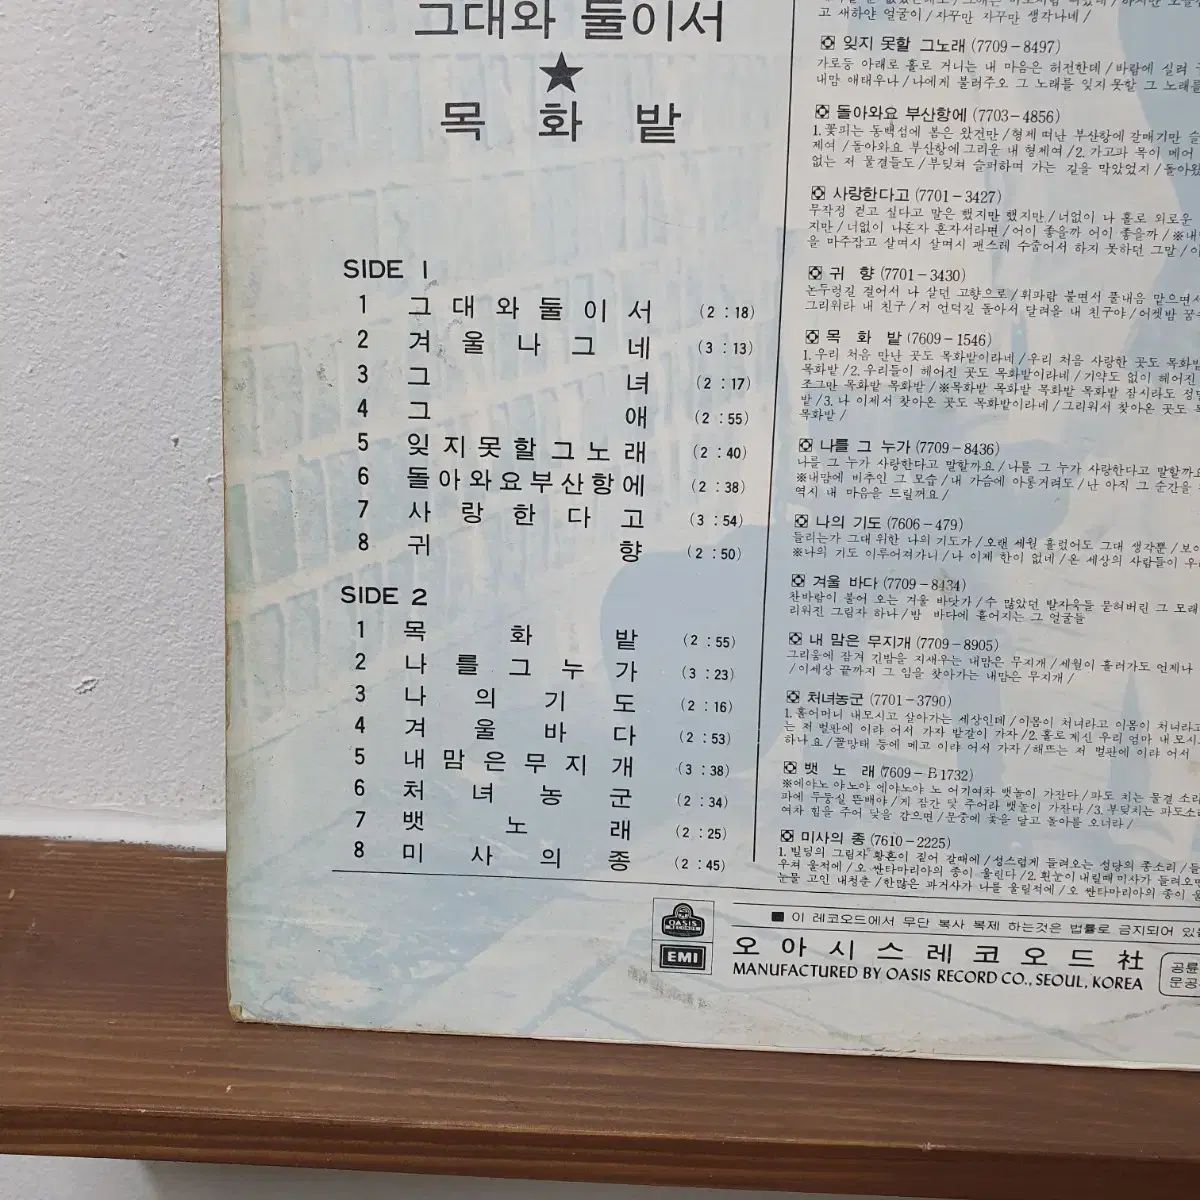 그대와 둘이서
★
목 화 밭
SIDE 1
1 그대와둘이서 (2:18)
2 겨울나그네 (3:13)
3 그 녀 (2:17)
4 그 애 (2:55)
5 잊지못할그노래 (2:40)
6 돌아와요부산항에 (2:38)
7 사랑한다고 (3:54)
8 귀 향 (2:50)
SIDE 2
1 목 화 밭 (2:55)
2 나를그누가 (3:23)
3 나의기도 (2:16)
4 겨울바다 (2:53)
5 내맘은무지개 (3:38)
6 처녀농군 (2:34)
7 뱃노래 (2:25)
8 미사의종 (2:45)
고 새하얀 얼굴이/자꾸만 자꾸만 생각나네/
잊지 못할 그노래 (7709-8497)
가로등 아래로 홀로 거니는 내 마음은 허전한데/바람에 실려
내맘 애태우나/나에게 불러주오 그 노래를 잊지 못할 그 노래를
돌아와요 부산항에 (7703-4856)
1. 꽃피는 동백섬에 봄은 왔건만/형제 떠난 부산항에 갈매기만 슬
제여/돌아와요 부산항에 그리운 내 형제여/2. 가고파 목이 메어
없는 저 물결들도/부딪쳐 슬퍼하며 가는 길을 막았었지/돌아왔
사랑한다고 (7701-3427)
무작정 걷고 싶다고 말은 했지만 했지만/너없이 나 홀로 외로운
지만/너없이 나혼자 혼자서라면/어이 좋을까 어이 좋을까/※내
을 마주잡고 살며시 살며시 괜스레 수줍어서 하지 못하던 그말/
귀 향 (7701-3430)
논두렁길 걸어서 나 살던 고향으로/휘파람 불면서 풀내음 맡으면서
그리워라 내 친구/저 언덕길 돌아서 달려올 내 친구야/어젯밤 꿈
목 화 밭 (7609-1546)
1. 우리 처음 만난 곳도 목화밭이라네/우리 처음 사랑한 곳도 목화밭
목화밭/2. 우리들이 헤어진 곳도 목화밭이라네/기약도 없이 헤어진
조그만 목화밭 목화밭/※목화밭 목화밭 목화밭 목화밭 잠시라도 정
밭/3. 나 이제서 찾아온 곳도 목화밭이라네/그리워서 찾아온 곳도 목
목화밭/
나를 그 누가 (7709-8436)
나를 그 누가 사랑한다고 말할까요/나를 그 누가 사랑한다고 말할까요
※내맘에 비추인 그 모습/내 가슴에 아롱거려도/난 아직 그 순간을
역시 내 마음을 드릴꺼요/
나의 기도 (7606-479)
들리는가 그대 위한 나의 기도가/오랜 세월 흘렀어도 그대 생각뿐/보
※나의 기도 이루어져가니/나 이제 한이 없네/온 세상의 사람들이 우
겨울 바다 (7709-8434)
찬바람이 불어 오는 겨울 바닷가/수 많았던 발자욱들 묻혀버린 그 모래
리워진 그림자 하나/밤 바다에 흩어지는 그 얼굴들
내 맘은 무지개 (7709-8905)
그리움에 잠겨 긴밤을 지새우는 내맘은 무지개/세월이 흘러가도 언제나
/이세상 끝까지 그 임을 찾아가는 내맘은 무지개/
처녀농군 (7701-3790)
1. 홀어머니 내모시고 살아가는 세상인데/이몸이 처녀라고 이몸이 처녀라고
는 저 벌판에 이랴 어서 가자 밭갈이 가자/2. 홀로계신 우리 엄마 내모시
하나요/꼴망태 등에 메고 이랴 어서 가자/해뜨는 저 벌판에 이랴 어서
뱃 노 래 (7609-B1732)
※에야노 야노야 에야노야 노 어기여차 뱃놀이 가잔다/파도 치는 물결 소리
파에 두둥실 뜬배야/게 잠간 닻 주어라 뱃놀이 가잔다/3. 부딪치는 파도소리
여차 힘을 주어 닻을 감으면/문중에 꽃을 달고 돌아를 오너라/
미사의 종 (7610-2225)
1. 빌딩의 그림자 황혼이 짙어 갈때에/성스럽게 들려오는 성당의 종소리/
우쳐 울적에/오 싼타마리아의 종이 울린다/2. 흰눈이 내릴때 미사가 들려오면
눈물 고인 내청춘/한많은 과거사가 나를 울릴적에/오 싼타마리아의 종이 울
■ 이 레코오드에서 무단 복사 복제 하는것은 법률로 금지되어 있
OASIS
RECORDS
EMI
오아시스레코오드社
MANUFACTURED BY OASIS RECORD CO., SEOUL, KOREA
공륜
문공